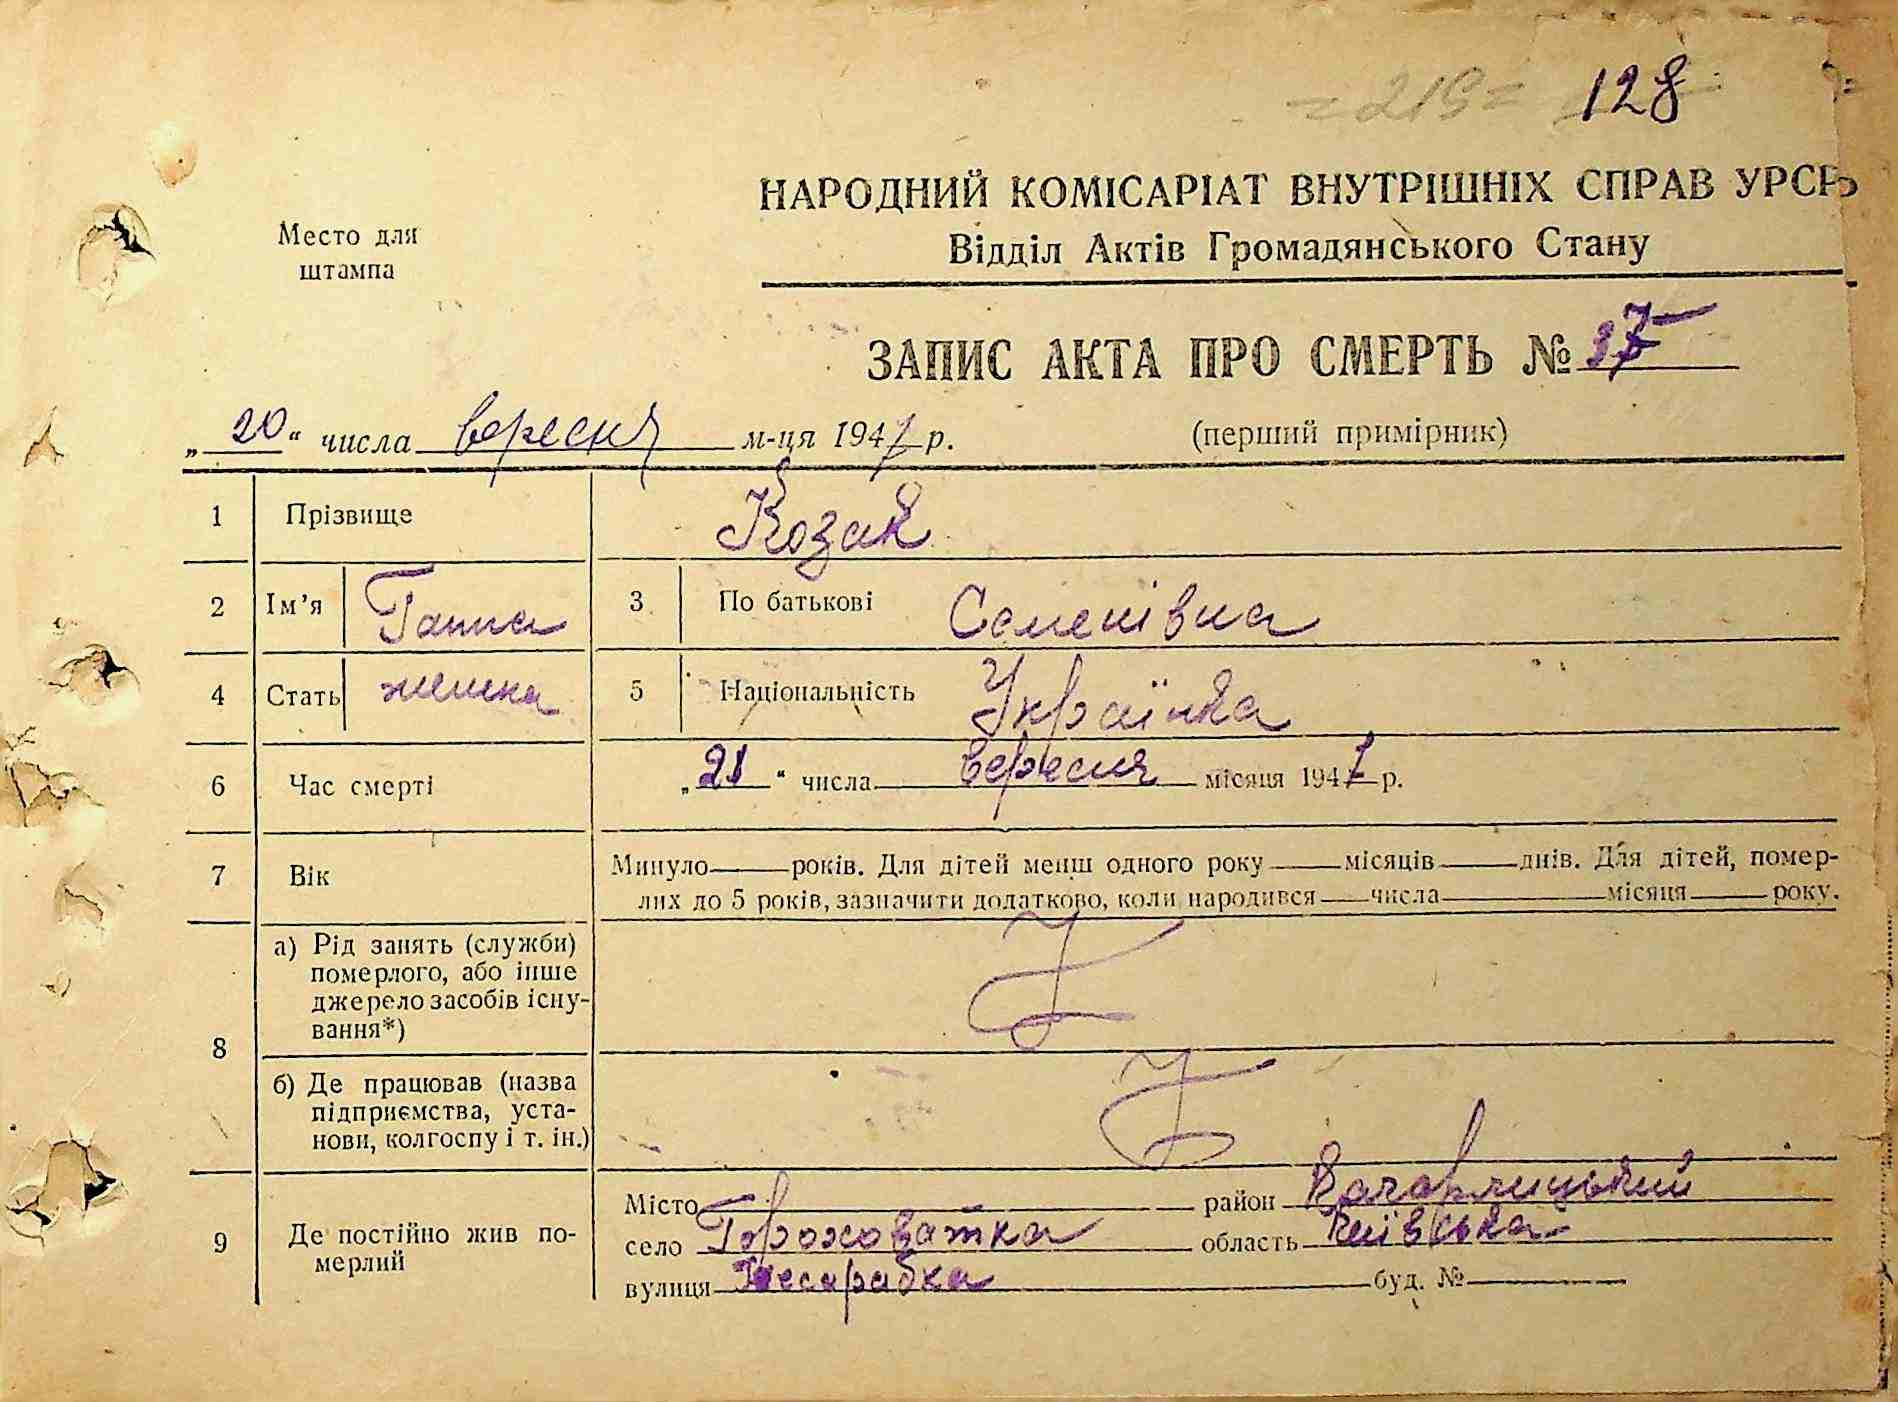 =219= 128
НАРОДНИЙ КОМІСАРІАТ ВНУТРІШНІХ СПРАВ УРСР
Место для
штампа
Відділ Актів Громадянського Стану
ЗАПИС АКТА ПРО СМЕРТЬ № 37
„20“ числа вересня м-ця 1941 р. (перший примірник)
1 Прізвище Козак
2 Ім'я Ганна 3 По батькові Семенівна
4 Стать 5 Національність Українка
6 Час смерті „21“ числа вересня місяця 1941 р.
7 Вік Минуло років. Для дітей менш одного року місяців днів. Для дітей, помер-
лих до 5 років, зазначити додатково, коли народився числа місяця року.
8 а) Рід занять (служби)
померлого, або інше
джерело засобів існу-
вання*)
б) Де працював (назва
підприємства, уста-
нови, колгоспу і т. ін.)
9 Де постійно жив по-
мерлий
Місто район Кагарлицький
село Горохова­тка область Київська
вулиця Бесарабка буд. №